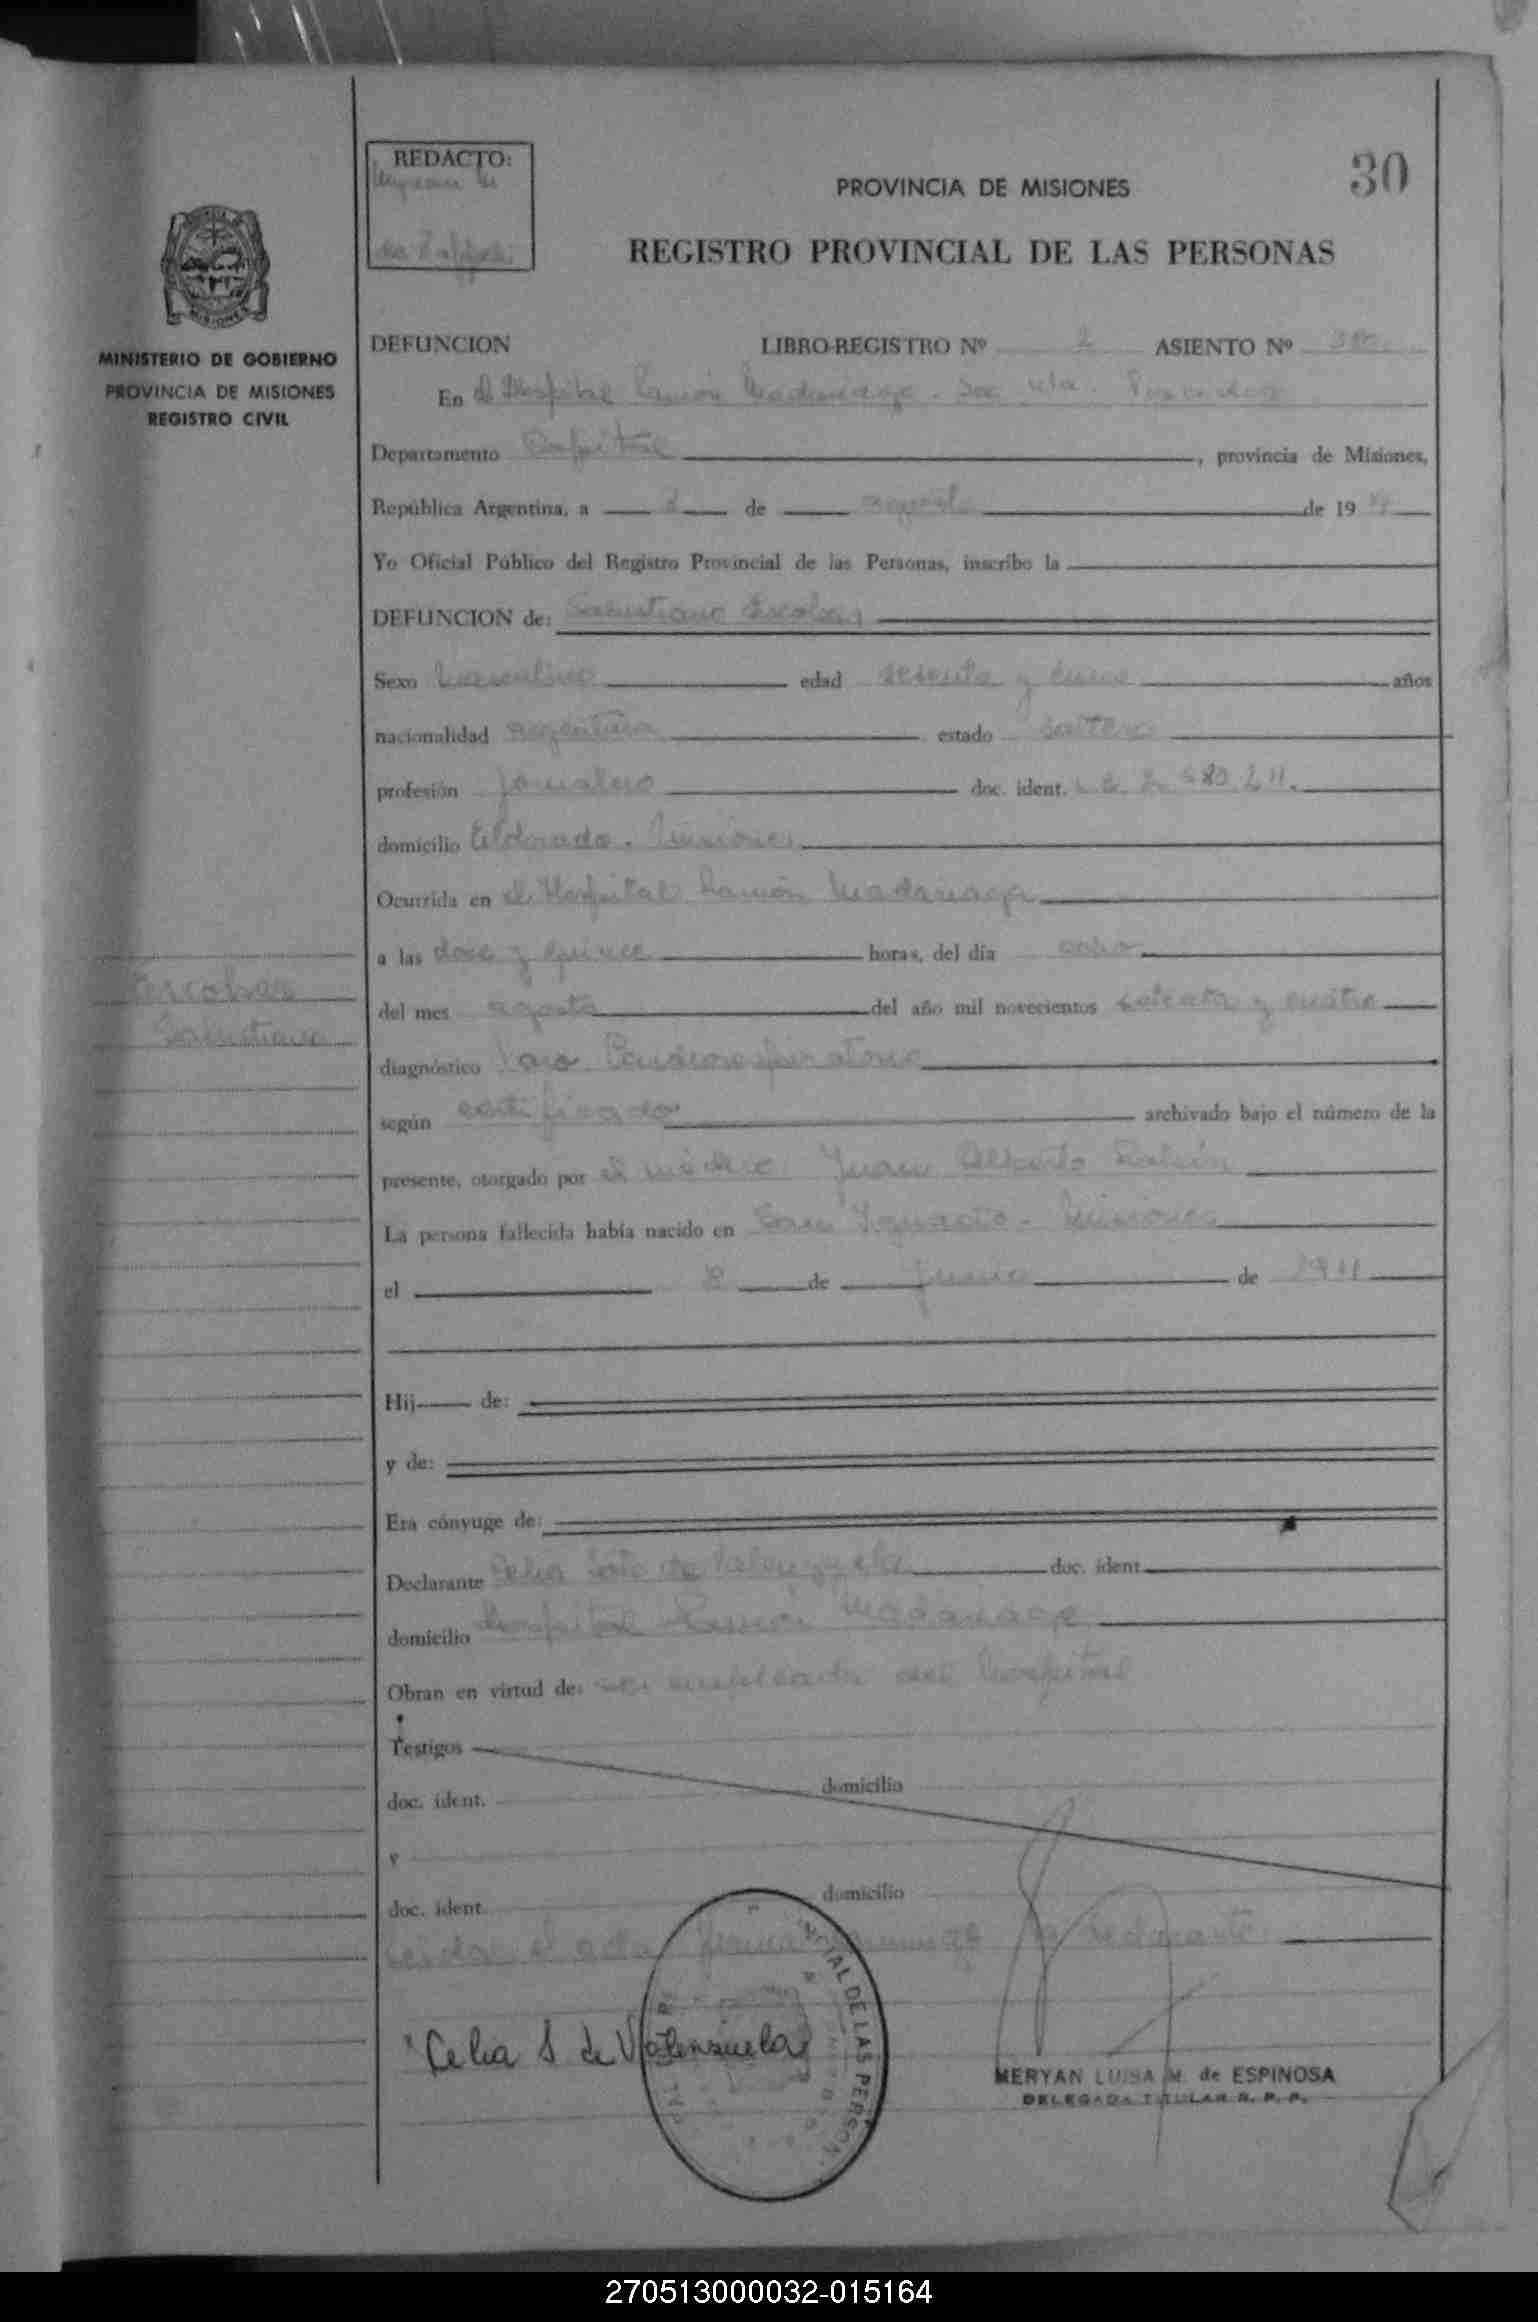 30
REDACTO:
PROVINCIA DE MISIONES
REGISTRO PROVINCIAL DE LAS PERSONAS
MISIONES
MINISTERIO DE GOBIERNO
PROVINCIA DE MISIONES
REGISTRO CIVIL
DEFUNCION LIBRO-REGISTRO Nº 2 ASIENTO Nº
En el Hospital Ramón Madariaga
Departamento Capital, provincia de Misiones,
República Argentina, a de agosto de 19
Yo Oficial Público del Registro Provincial de las Personas, inscribo la
DEFUNCION de: Salustiano Escobar
Sexo Masculino edad sesenta y años
nacionalidad argentina estado soltero
profesión Jornalero doc. ident.
domicilio Eldorado. Misiones
Ocurrida en el Hospital Ramón Madariaga
a las doce y quince horas, del día
Escobar
del mes agosto del año mil novecientos setenta y cuatro
Salustiano
diagnóstico Paro Cardiorespiratorio
según certificado archivado bajo el número de la
presente, otorgado por el médico Juan Alberto
La persona fallecida había nacido en San Ignacio - Misiones
el 8 de de 1911
Hij de:
y de:
Era cónyuge de:
Declarante Celia Soto de Valenzuela doc. ident.
domicilio Hospital Ramón Madariaga
Obran en virtud de: ser empleada del hospital
Testigos
doc. ident. domicilio
y
doc. ident. domicilio
Leida el acta firma conmigo la declarante
NCIAL DE LAS PERSON
Celia S de Valenzuela
MERYAN LUISA M. de ESPINOSA
DELEGADA TITULAR R. P. P.
270513000032-015164